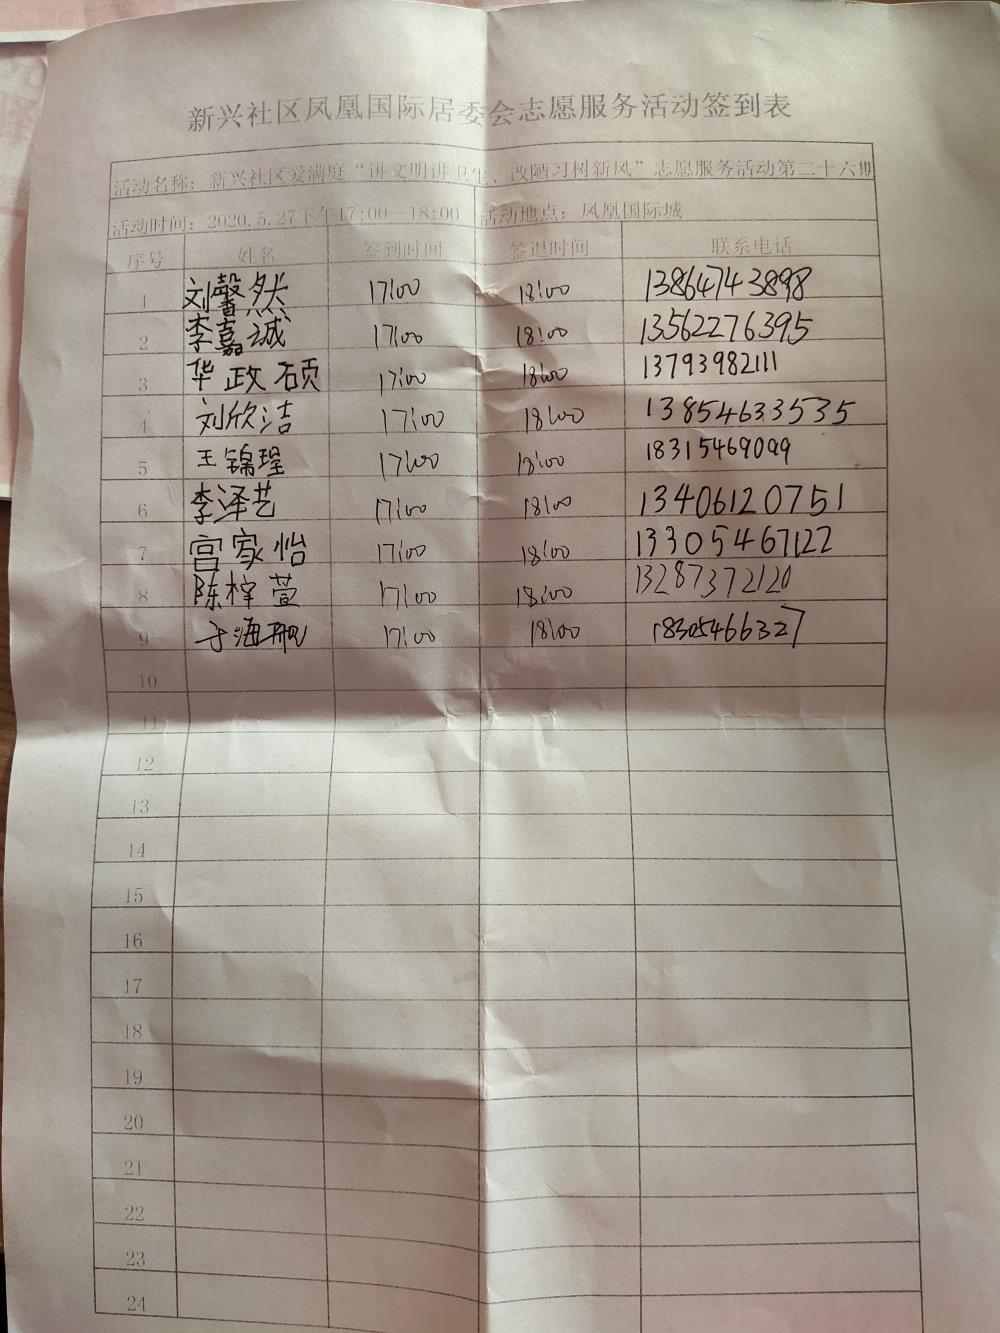 新兴社区凤凰国际居委会志愿服务活动签到表
活动名称：新兴社区爱满庭“讲文明讲卫生、改陋习树新风”志愿服务活动第二十六期
活动时间：2020.5.27下午17:00--18:00 活动地点：凤凰国际城
序号 姓名 签到时间 签退时间 联系电话
1 刘馨然 17:00 18:00 13864743898
2 李嘉诚 17:00 18:00 13562276395
3 华政硕 17:00 18:00 13793982111
4 刘欣洁 17:00 18:00 13854633535
5 王锦瑆 17:00 18:00 18315469099
6 李泽艺 17:00 18:00 13406120751
7 宫家怡 17:00 18:00 13305467122
8 陈梓萱 17:00 18:00 13287372120
9 于海 17:00 18:00 18305466327
10
11
12
13
14
15
16
17
18
19
20
21
22
23
24